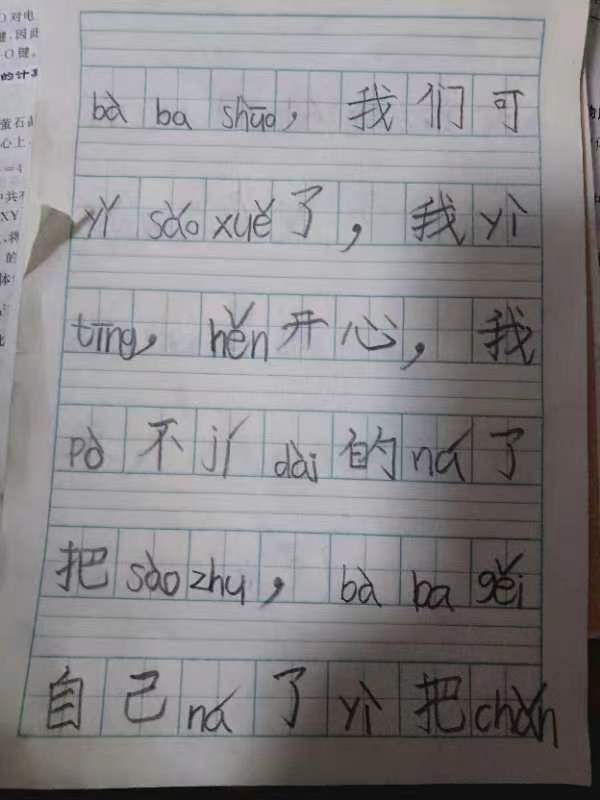 bà ba shuō，我们可
yǐ sǎo xuě了，我yì
tīng，hěn开心，我
pò不jí dài的ná了
把sào zhu，bà ba gěi
自己ná了yì把chǎn